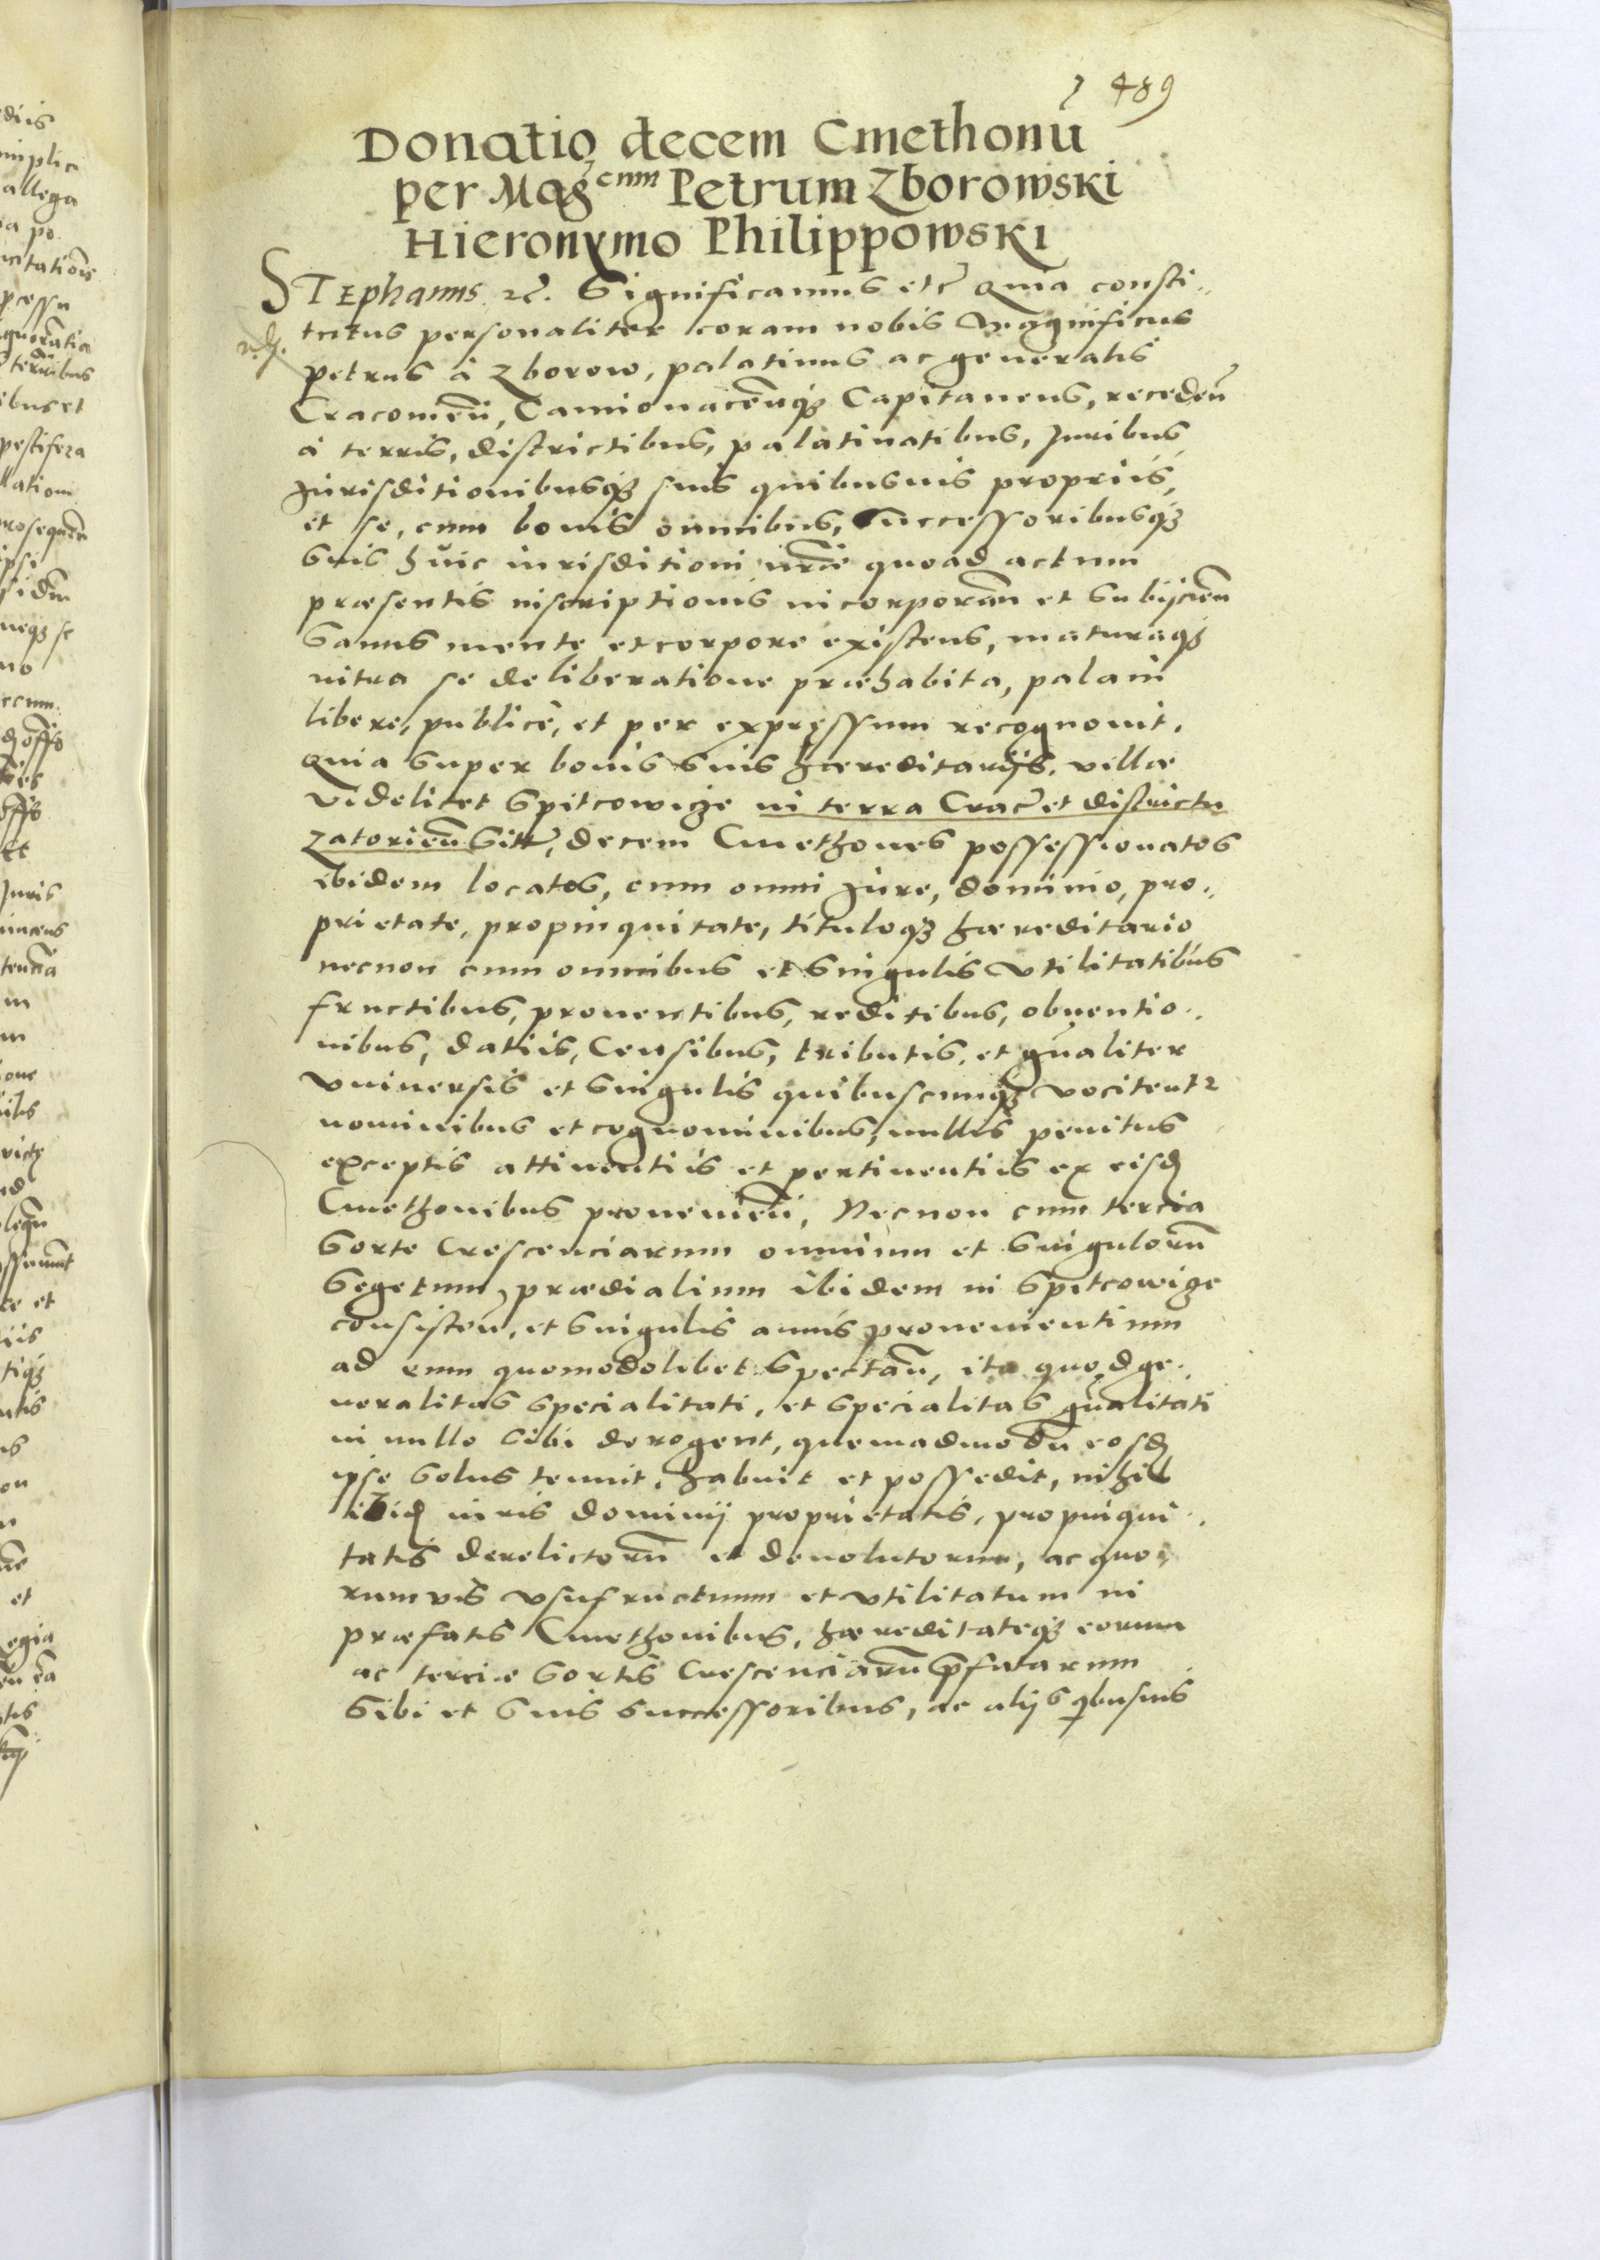 489
Donatio decem Cmethonū
per Mag̃cum Petrum Zborowski
Hieronymo Philippowski
STephanus &c̃. Significamus etc̃ Quia consti..
tutus personaliter coram nobis Magnificus
Petrus à Zborow, palatinus ac generalis
Cracouieñ, Camionaceñqʒ Capitaneus, recedeñ
à terris, districtibus, palatinatibus, Juribus,
Jurisditionibusqʒ suis quibusuis proprijs,
et se, cum bonis omnibus, Successoribusqʒ
suis huic iurisditioni nr̃æ quoad actum
præsentis inscriptionis incorporañ et subijcieñ
sanus mente et corpore existens, maturaqʒ
intra se deliberatione præhabita, palam
libere, publicè, et per expressum recognouit.
Quia super bonis suis hæreditarijs. villæ
videlicet Spitcowice in terra Crac̃ et districtu
Zatorieñ sitt̃, decem Cmethones possessionatos
ibidem locatos, cum omni Jure, dominio, pro..
prietate, propinquitate, tituloqʒ hæreditario
necnon cum omnibus et singulis vtilitatibus
fructibus, prouentibus, reditibus, obuentio..
nibus, datiis, Censibus, tributis, et gñaliter
vniuersis et singulis quibuscunqʒ vocitent2
nominibus et cognominibus, nullis penitus
exceptis attinentiis et pertinentiis ex eisd
Cmethonibus prouenieñ, Necnon cum tercia
sorte Crescenciarum omnium et singulorũ
segetum, prædialium ibidem in Spitcowice
consisteñ, et singulis annis prouenientium
ad eum quomodolibet spectañ, ita quod ge..
neralitas specialitati, et specialitas gñalitati
in nullo sibi derogent, quemadmodũ eosd
ipse solus tenuit, habuit et possedit, nihil
ibid iuris dominij proprietatis, propinqui..
tatis derelictorũ et deuolutorum, ac quo..
rumvis vsufructuum et vtilitatum in
præfatis Cmethonibus, hæreditateqʒ eorum
ac terciæ sortis Crescenciarũ p̃fatarum
sibi et suis successoribus, ac alijs qbusuis